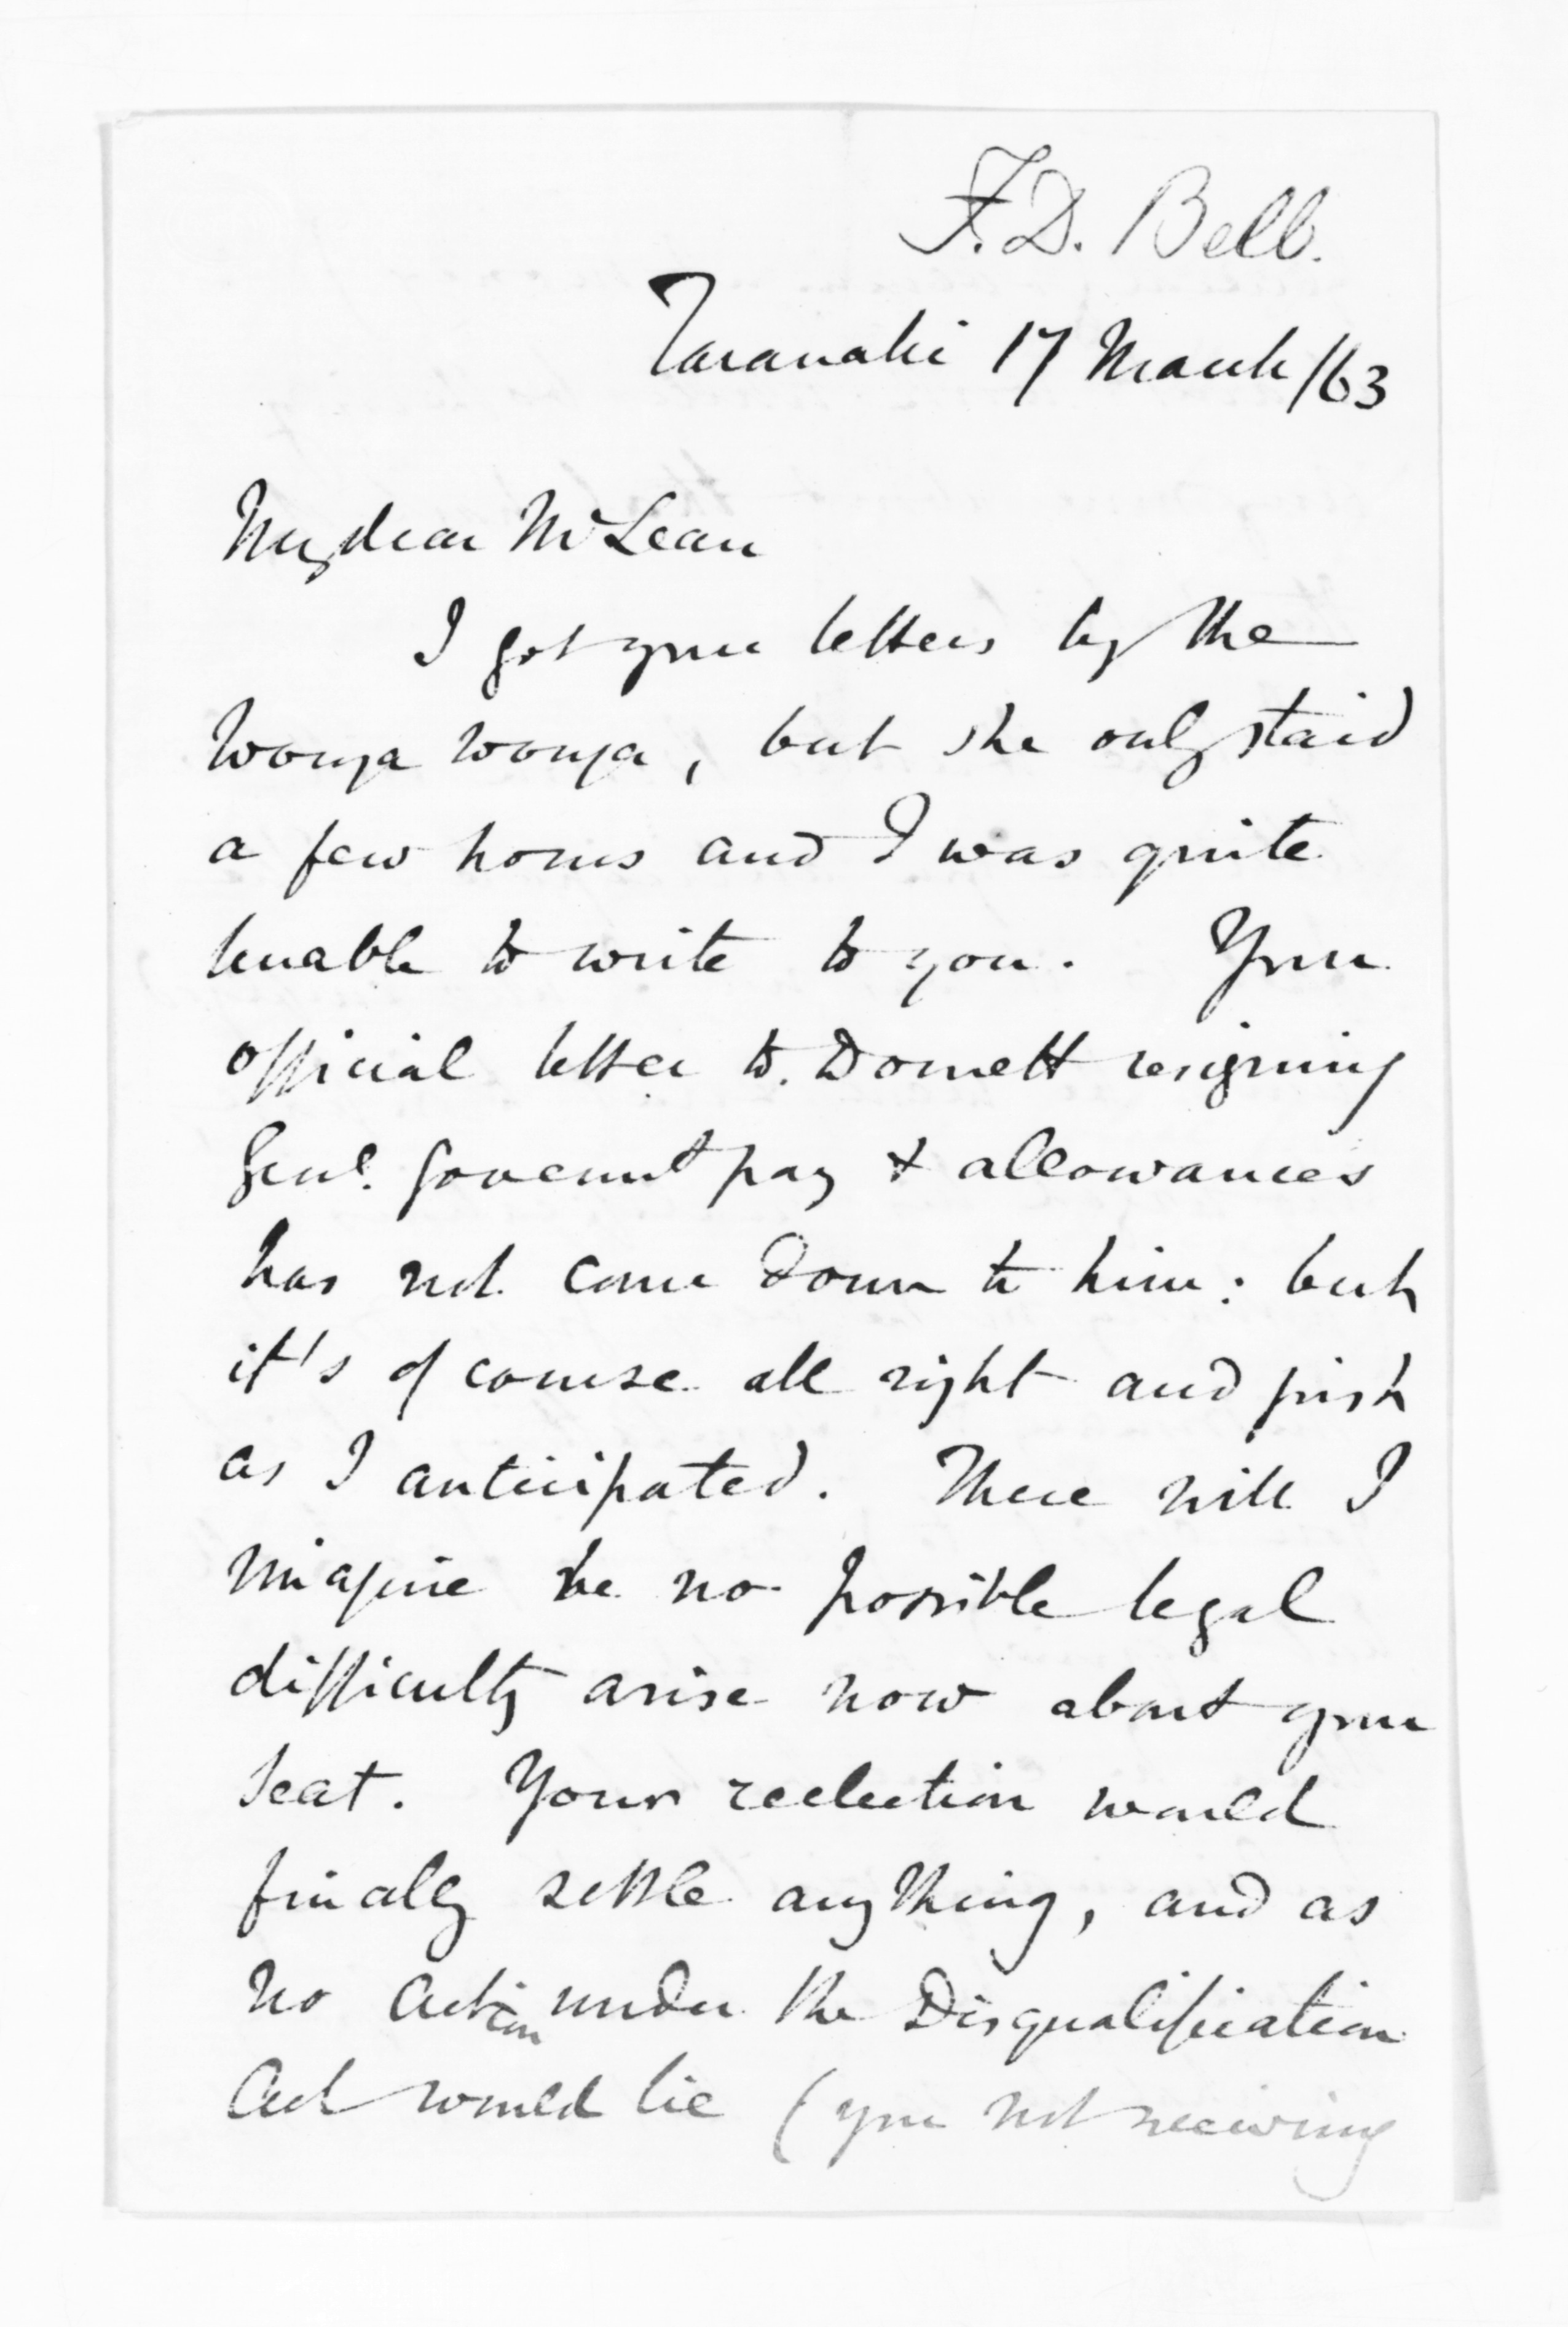 F. D. Bell.
Taranaki 17 March /63
My dear McLean
I got your letters by the
Wonga Wonga, but she only staid
a few hours and I was quite
unable to write to you. Your
official letter to Domett resigning
Genl. Governmt pay & allowances
has not come down to him: but
it's of course all right and just
as I anticipated. There will I
imagine be no possible legal
difficulty arise now about your
seat. Your reelection would
finally settle anything, and as
no action under the Disqualification
Act would lie (you not receiving